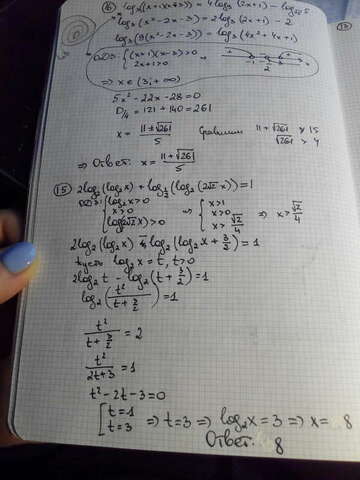 16) log₃(x+1)(x-3) = 4log₉(2x+1) - log√5 5
log₃(x²-2x-3) = 2log₃(2x+1) - 2
log₃(9(x²-2x-3)) = log₃(4x²+4x+1)
ОДЗ: { (x+1)(x-3)>0
2x+1>0
⇒ x ∈ (3; +∞)
5x² - 22x - 28 = 0
D/4 = 121 + 140 = 261
x = (11 ± √261)/5 Сравним 11+√261 ∨ 15
√261 > 4
⇒ Ответ: x = (11+√261)/5
15) 2log₂(log₂x) + log_{1/2}(log₂(2√2 x)) = 1
ОДЗ: { log₂x > 0
x > 0
log₂(2√2 x) > 0
⇒ { x > 1
x > 0
x > √2/4
⇒ x > √2/4
2log₂(log₂x) - log₂(log₂x + 3/2) = 1
пусть log₂x = t, t>0
2log₂t - log₂(t + 3/2) = 1
log₂(t²/(t + 3/2)) = 1
t²/(t + 3/2) = 2
t²/(2t+3) = 1
t² - 2t - 3 = 0
[ t = 1
t = 3
⇒ t = 3 ⇒ log₂x = 3 ⇒ x = 8
Ответ: 8